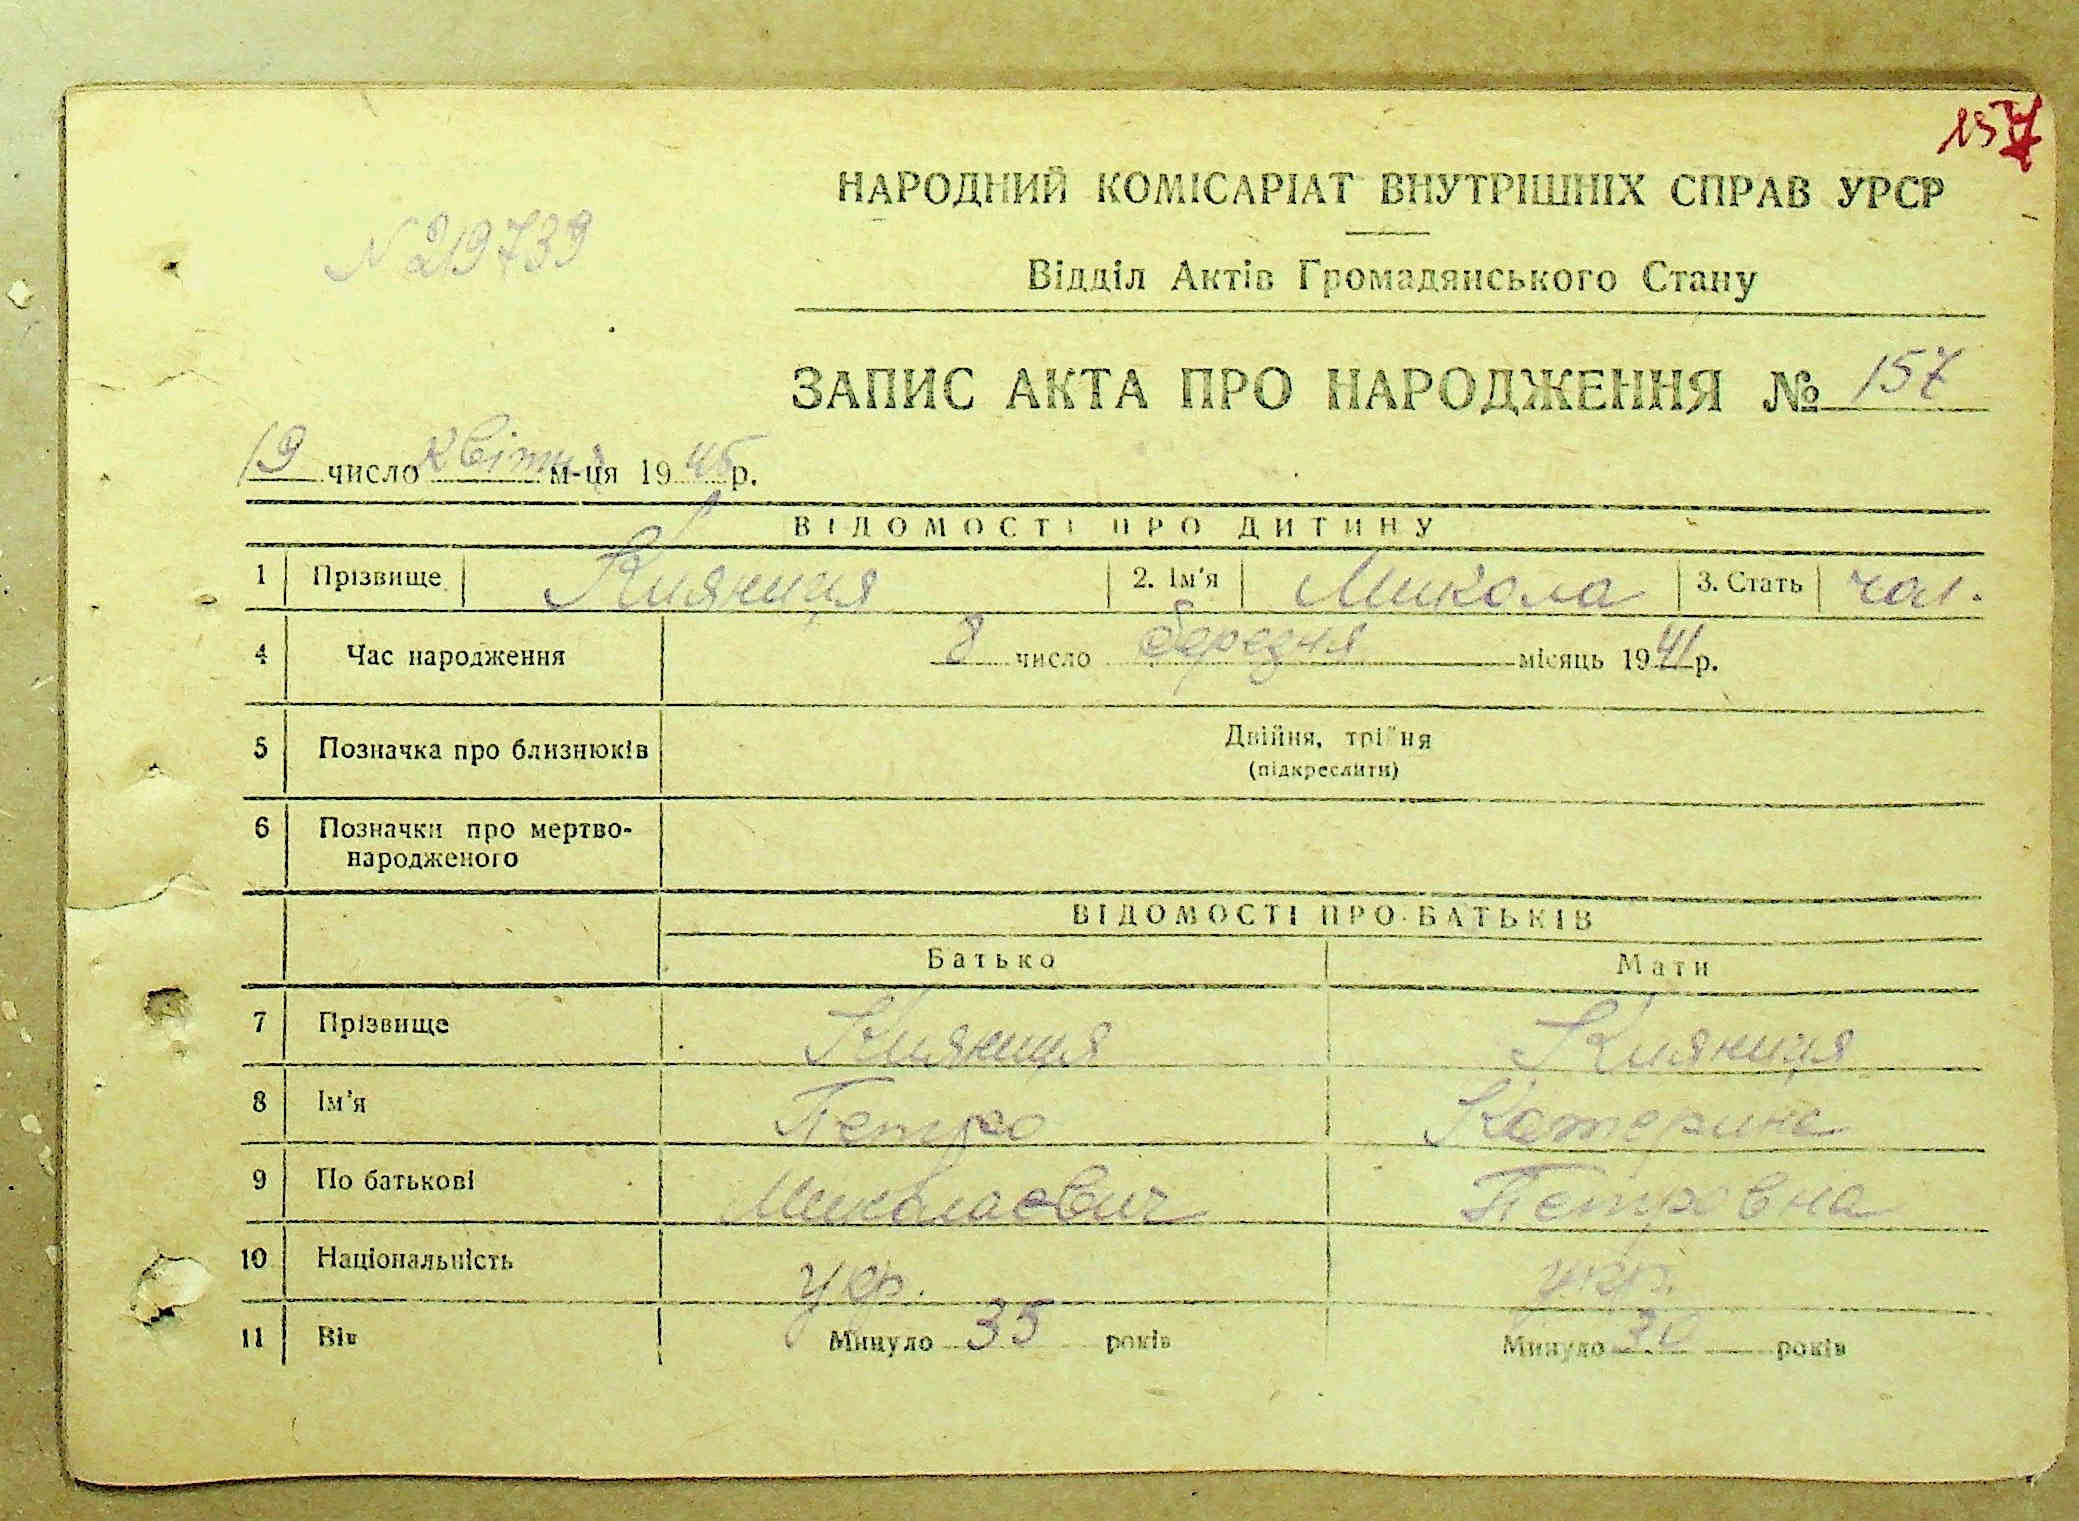 157
НАРОДНИЙ КОМІСАРІАТ ВНУТРІШНІХ СПРАВ УРСР
N 219739
Відділ Актів Громадянського Стану
ЗАПИС АКТА ПРО НАРОДЖЕННЯ № 157
19 число квітня м-ця 1945 р.
ВІДОМОСТІ ПРО ДИТИНУ
1 Прізвище Кияниця 2. Ім'я Микола 3. Стать чол.
4 Час народження 8 число березня місяць 1941 р.
5 Позначка про близнюків Двійня, трійня
(підкреслити)
6 Позначки про мертво-
народженого
ВІДОМОСТІ ПРО БАТЬКІВ
Батько Мати
7 Прізвище Кияниця Кияниця
8 Ім'я Петро Катерина
9 По батькові Миколаєвич Петровна
10 Національність укр. укр.
11 Вік Минуло 35 років Минуло 30 років